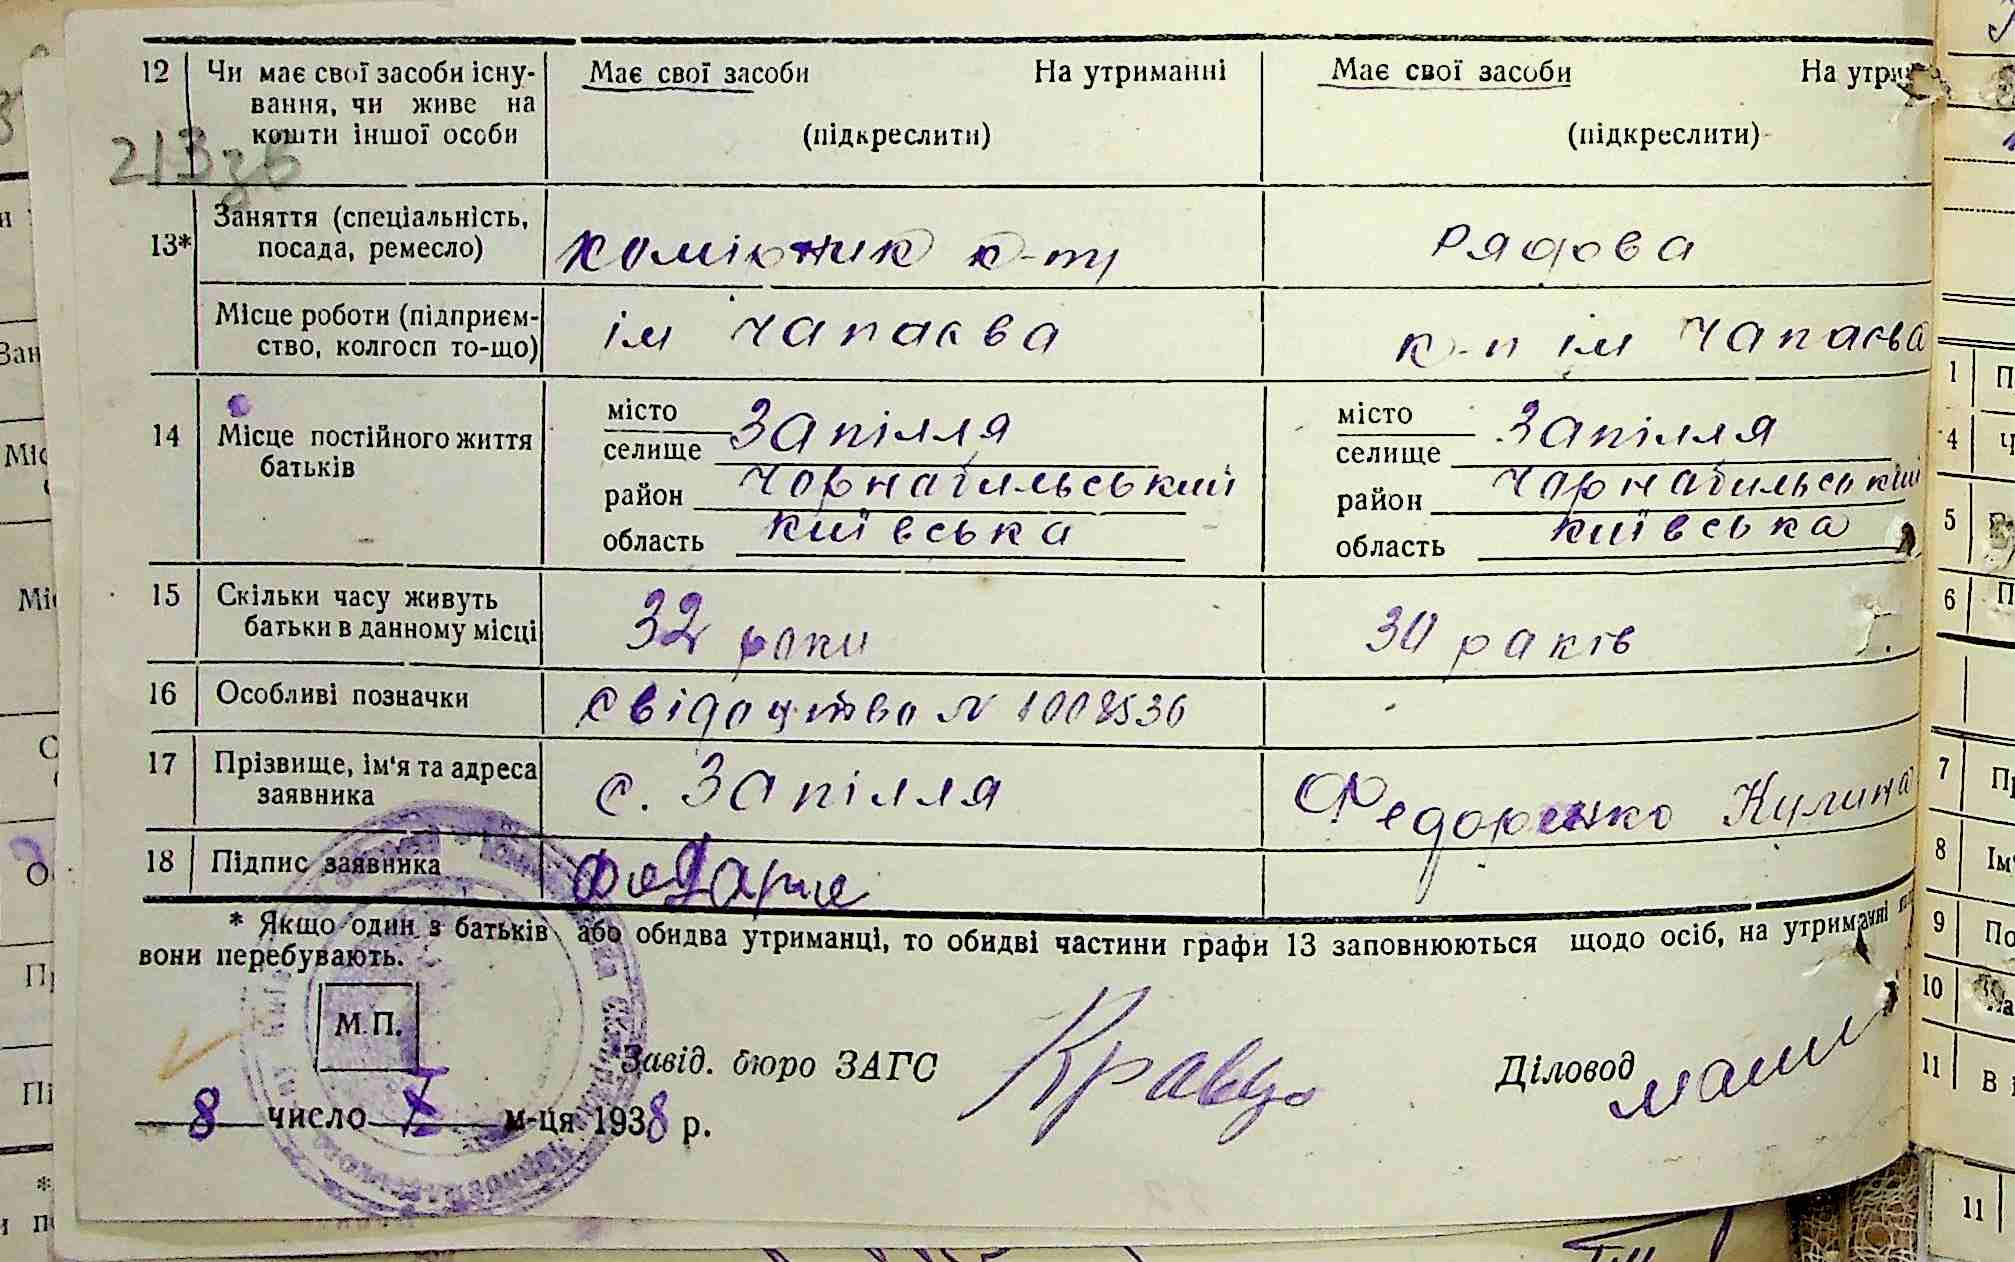 12 Чи має свої засоби існу- Має свої засоби На утриманні Має свої засоби На утрим
вання, чи живе на
кошти іншої особи (підкреслити) (підкреслити)
213зв
13* Заняття (спеціальність,
посада, ремесло) комірник к-пу рядова
Місце роботи (підприєм-
ство, колгосп то-що) ім Чапаєва к-п ім Чапаєва
14 Місце постійного життя
батьків
місто
селище Запілля
район Чорнабильський
область київська
місто
селище Запілля
район Чорнабильський
область київська
15 Скільки часу живуть
батьки в данному місці 32 роки 30 раків
16 Особливі позначки свідоцтво N 1008536
17 Прізвище, ім'я та адреса
заявника с. Запілля Федоренко Кулина
18 Підпис заявника
* Якщо один з батьків або обидва утриманці, то обидві частини графи 13 заповнюються щодо осіб, на утриманні
вони перебувають.
М.П.
Завід. бюро ЗАГС Діловод
8 число X м-ця 1938 р.
1
4
5
6
7
8
9
10
11
11